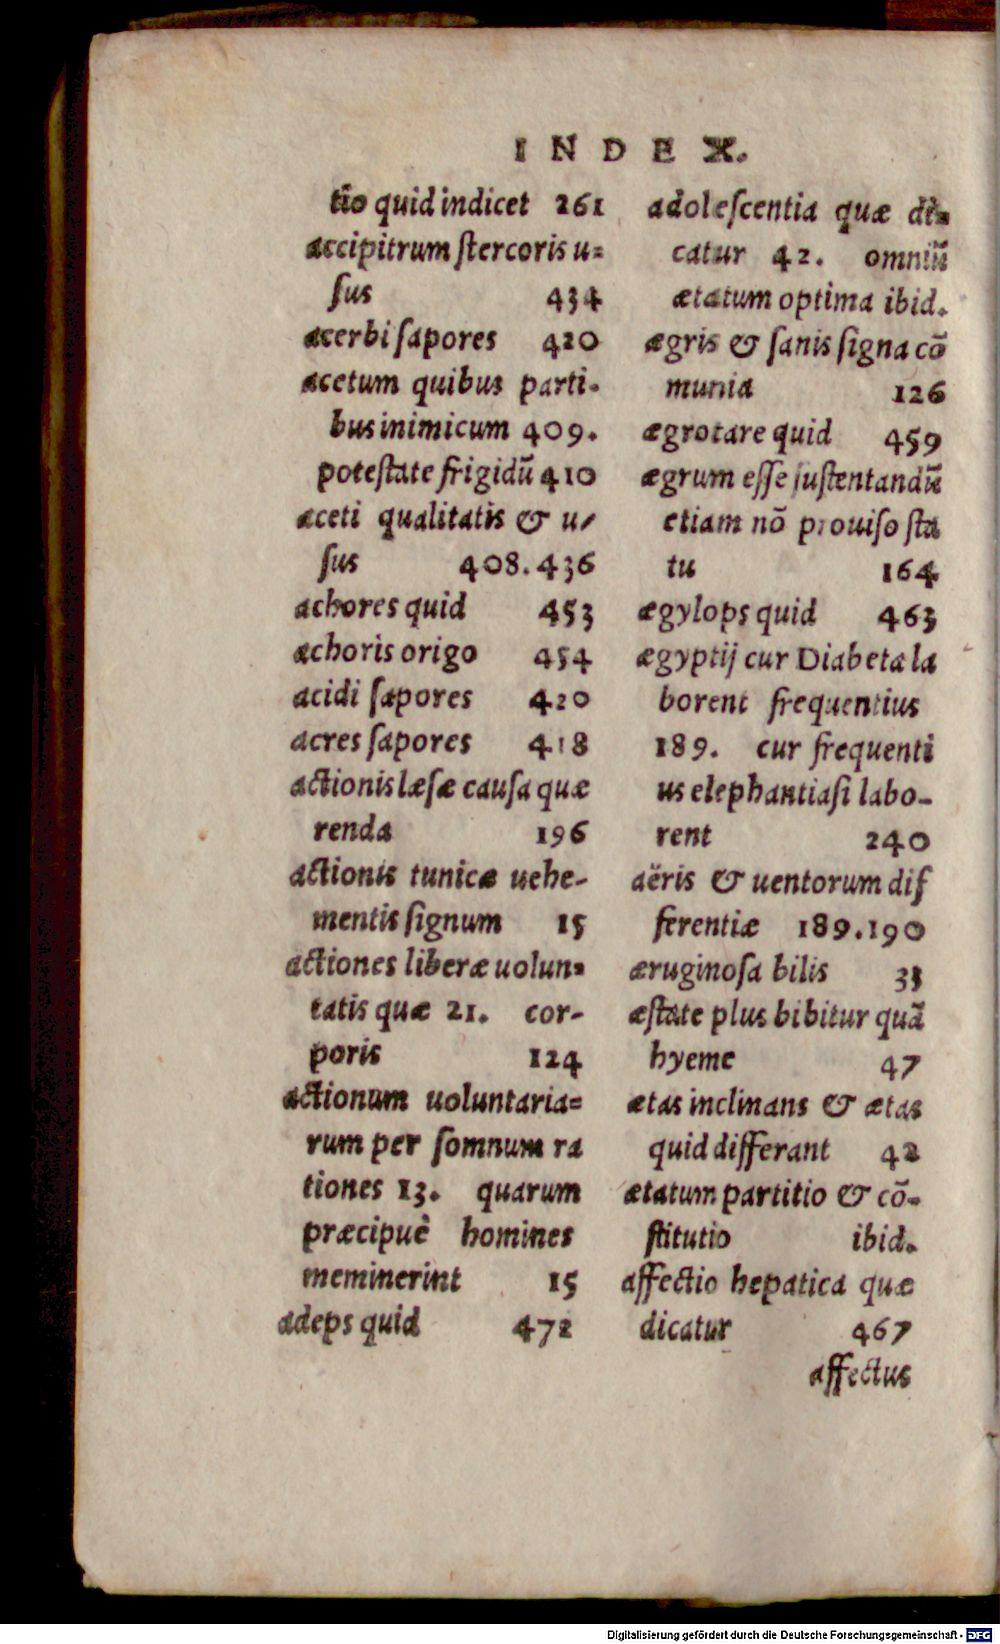 INDEX.
tio quid indicet 261
accipitrum ſtercoris u=
ſus 434
acerbi ſapores 420
acetum quibus parti-
bus inimicum 409.
poteſtate frigidū 410
aceti qualitatis & u/
ſus 408.436
achores quid 453
achoris origo 454
acidi ſapores 420
acres ſapores 418
actionis læſæ cauſa quæ
renda 196
actionis tunicæ uehe-
mentis ſignum 15
actiones liberæ uolun=
tatis quæ 21. cor-
poris 124
actionum uoluntaria=
rum per ſomnum ra
tiones 13. quarum
præcipuè homines
meminerint 15
adeps quid 472
adoleſcentia quæ di=
catur 42. omniū
ætatum optima ibid.
ægris & ſanis ſigna cō
munia 126
ægrotare quid 459
ægrum eſſe ſuſtentandū
etiam nō prouiſo ſta
tu 164
ægylops quid 463
ægyptij cur Diabeta la
borent frequentius
189. cur frequenti
us elephantiaſi labo-
rent 240
aëris & uentorum dif
ferentiæ 189.190
æruginoſa bilis 33
æſtate plus bibitur quā
hyeme 47
ætas inclinans & ætas
quid differant 42
ætatum partitio & cō-
ſtitutio ibid.
affectio hepatica quæ
dicatur 467
affectus
Digitalisierung gefördert durch die Deutsche Forschungsgemeinschaft - DFG